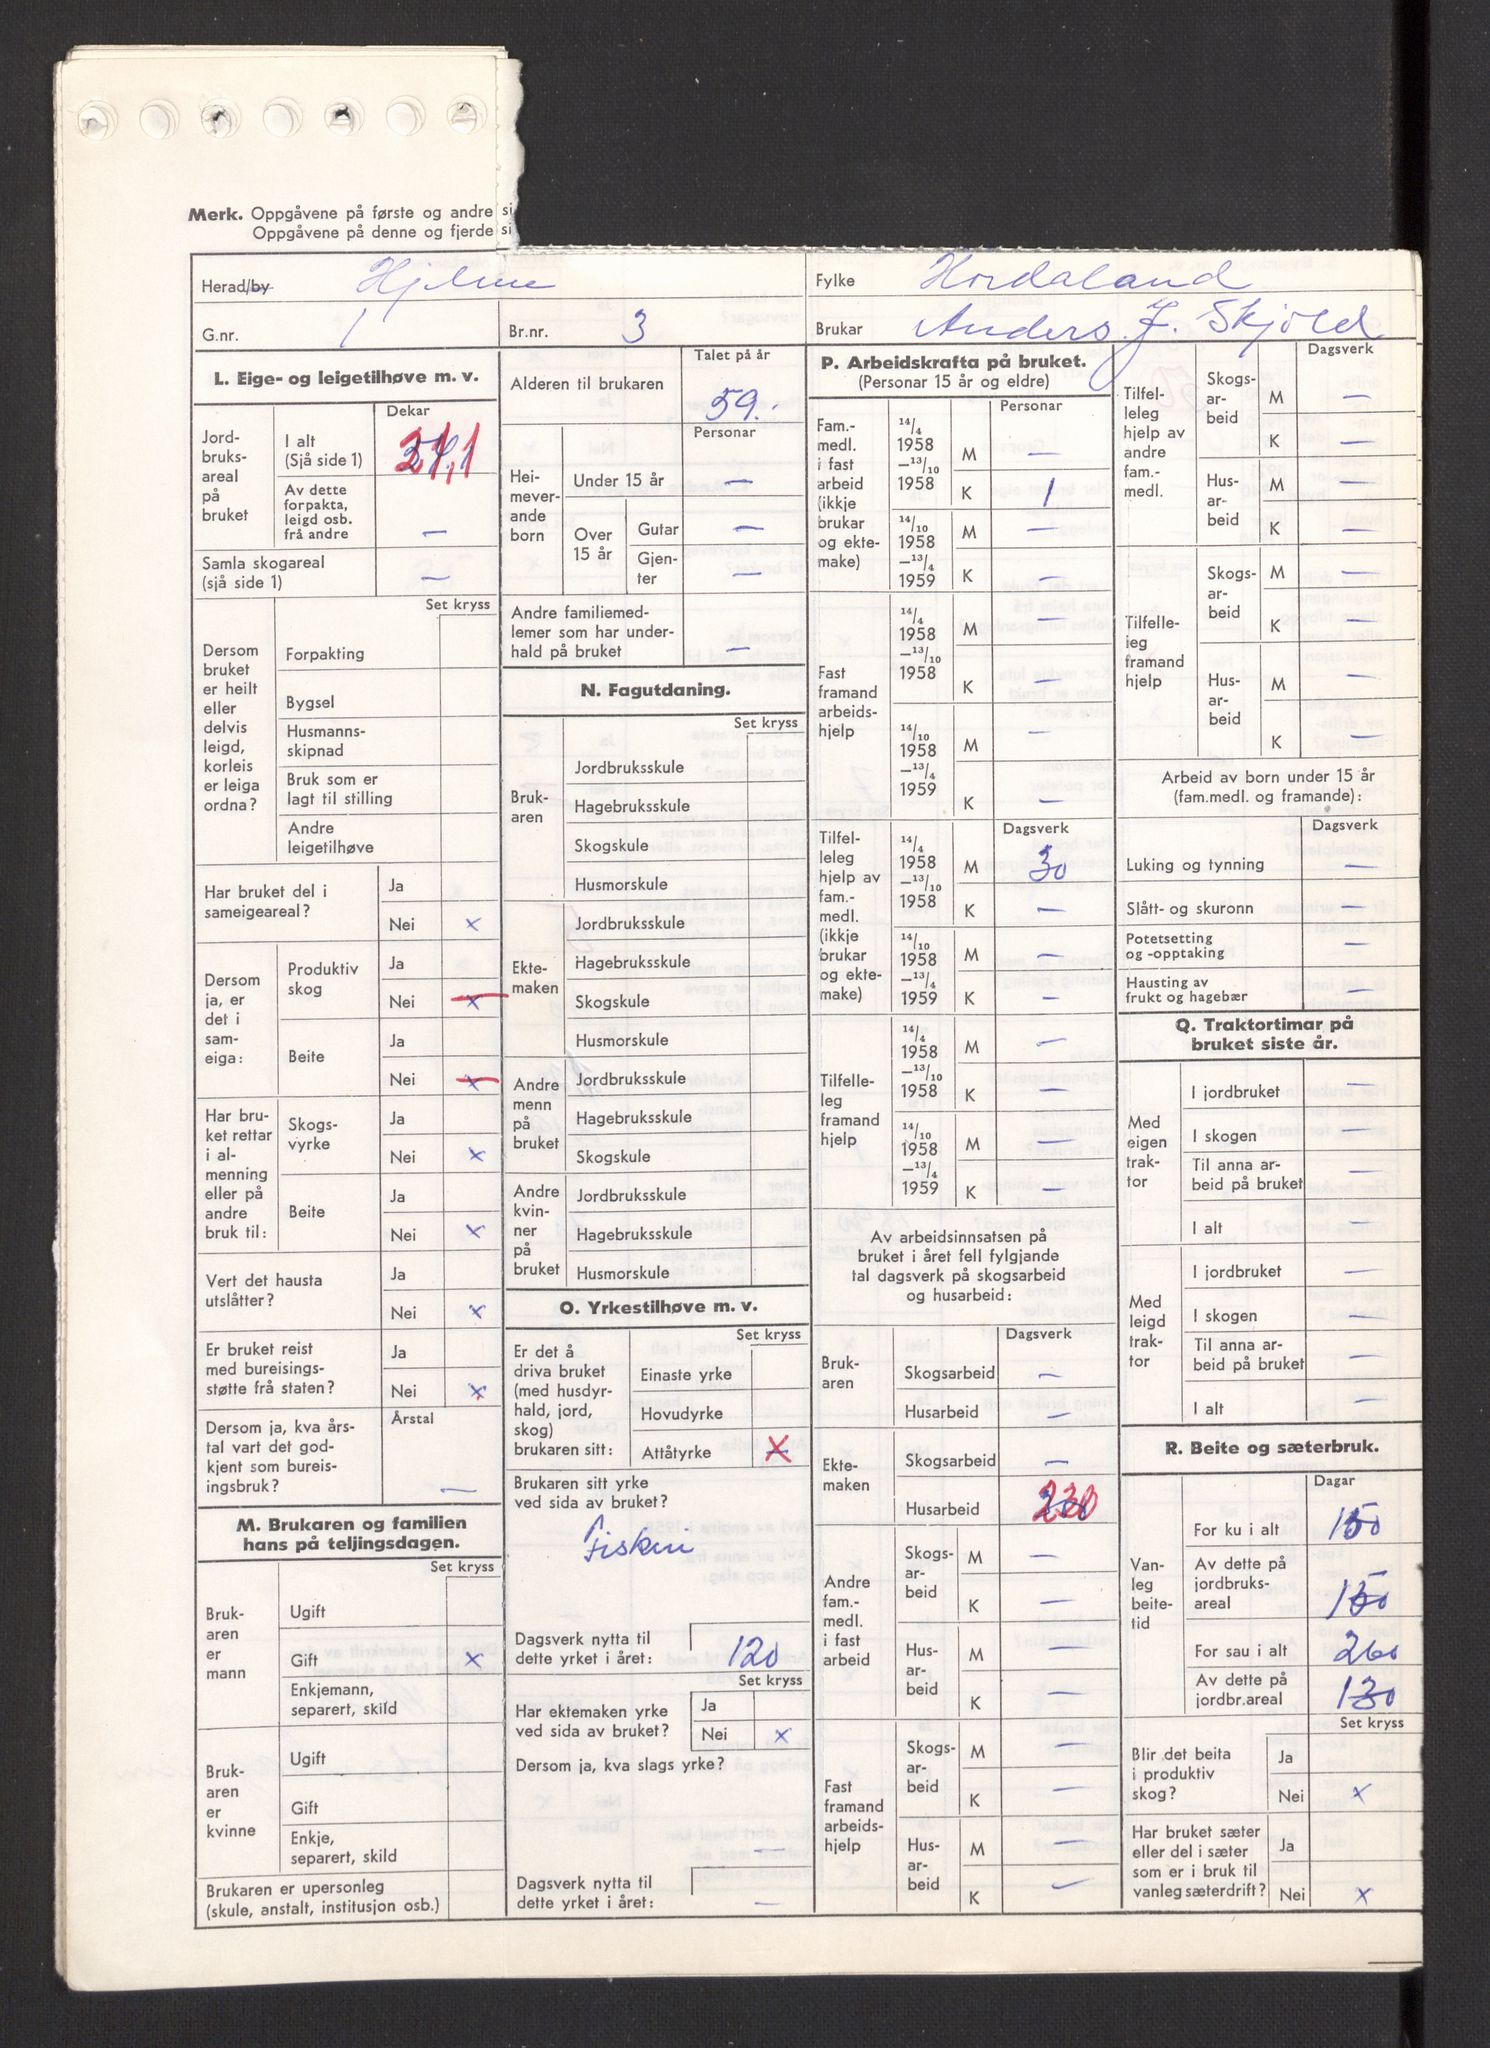 Merk. Oppgåvene på første og andre si
Oppgåvene på denne og fjerde si
Herad/by Hjelme
Fylke Hordaland
G.nr. 1
Br.nr. 3
Brukar Anders J. Skjold
L. Eige- og leigetilhøve m. v.
Dekar
Jord-
bruks-
areal
på
bruket
I alt
(Sjå side 1)
Av dette
forpakta,
leigd osb.
frå andre —
Samla skogareal
(sjå side 1) —
Set kryss
Dersom
bruket
er heilt
eller
delvis
leigd,
korleis
er leiga
ordna?
Forpakting
Bygsel
Husmanns-
skipnad
Bruk som er
lagt til stilling
Andre
leigetilhøve
Har bruket del i
sameigeareal?
Ja
Nei x
Dersom
ja, er
det i
sam-
eiga:
Produktiv
skog
Ja
Nei x
Beite
Ja
Nei x
Har bru-
ket rettar
i al-
menning
eller på
andre
bruk til:
Skogs-
vyrke
Ja
Nei x
Beite
Ja
Nei x
Vert det hausta
utslåtter?
Ja
Nei x
Er bruket reist
med bureisings-
støtte frå staten?
Ja
Nei x
Dersom ja, kva års-
tal vart det god-
kjent som bureis-
ingsbruk?
Årstal
—
M. Brukaren og familien
hans på teljingsdagen.
Set kryss
Bruk-
aren
er
mann
Ugift
Gift x
Enkjemann,
separert, skild
Bruk-
aren
er
kvinne
Ugift
Gift
Enkje,
separert, skild
Brukaren er upersonleg
(skule, anstalt, institusjon osb.)
Talet på år
Alderen til brukaren 59.
Personar
Hei-
mever-
ande
born
Under 15 år —
Over
15 år
Gutar —
Gjen-
ter —
Andre familiemed-
lemer som har under-
hald på bruket —
N. Fagutdaning.
Set kryss
Bruk-
aren
Jordbruksskule
Hagebruksskule
Skogskule
Husmorskule
Ekte-
maken
Jordbruksskule
Hagebruksskule
Skogskule
Husmorskule
Andre
menn
på
bruket
Jordbruksskule
Hagebruksskule
Skogskule
Andre
kvin-
ner
på
bruket
Jordbruksskule
Hagebruksskule
Husmorskule
O. Yrkestilhøve m. v.
Set kryss
Er det å
driva bruket
(med husdyr-
hald, jord,
skog)
brukaren sitt:
Einaste yrke
Hovudyrke
Attåtyrke x
Brukaren sitt yrke
ved sida av bruket?
Fiskeri
Dagsverk nytta til
dette yrket i året: 120
Set kryss
Har ektemaken yrke
ved sida av bruket?
Ja
Nei x
Dersom ja, kva slags yrke?
—
Dagsverk nytta til
dette yrket i året: —
P. Arbeidskrafta på bruket.
(Personar 15 år og eldre)
Personar
Fam.-
medl.
i fast
arbeid
(ikkje
brukar
og ekte-
make)
14/4
1958
—13/10
1958
M —
K 1
14/10
1958
—13/4
1959
M —
K —
Fast
framand
arbeids-
hjelp
14/4
1958
—13/10
1958
M —
K —
14/10
1958
—13/4
1959
M —
K —
Dagsverk
Tilfel-
leleg
hjelp av
fam.-
medl.
(ikkje
brukar
og ekte-
make)
14/4
1958
—13/10
1958
M 30
K —
14/10
1958
—13/4
1959
M —
K —
Tilfelle-
leg
framand
hjelp
14/4
1958
—13/10
1958
M —
K —
14/10
1958
—13/4
1959
M —
K —
Av arbeidsinnsatsen på
bruket i året fell fylgjande
tal dagsverk på skogsarbeid
og husarbeid:
Dagsverk
Bruk-
aren
Skogsarbeid —
Husarbeid —
Ekte-
maken
Skogsarbeid —
Husarbeid 230
Andre
fam.-
medl.
i fast
arbeid
Skogs-
ar-
beid
M —
K —
Hus-
ar-
beid
M —
K —
Fast
framand
arbeids-
hjelp
Skogs-
ar-
beid
M —
K —
Hus-
ar-
beid
M —
K —
Dagsverk
Tilfel-
leleg
hjelp av
andre
fam.-
medl.
Skogs-
ar-
beid
M —
K —
Hus-
ar-
beid
M —
K —
Tilfelle-
ieg
framand
hjelp
Skogs-
ar-
beid
M —
K —
Hus-
ar-
beid
M —
K —
Arbeid av born under 15 år
(fam.medl. og framande):
Dagsverk
Luking og tynning —
Slått- og skuronn —
Potetsetting
og -opptaking —
Hausting av
frukt og hagebær —
Q. Traktortimar på
bruket siste år.
Med
eigen
trak-
tor
I jordbruket —
I skogen —
Til anna ar-
beid på bruket —
I alt —
Med
leigd
trak-
tor
I jordbruket —
I skogen —
Til anna ar-
beid på bruket —
I alt —
R. Beite og sæterbruk.
Dagar
Van-
leg
beite-
tid
For ku i alt 150
Av dette på
jordbruks-
areal 150
For sau i alt 260
Av dette på
jordbr.areal 130
Set kryss
Blir det beita
i produktiv
skog?
Ja
Nei x
Har bruket sæter
eller del i sæter
som er i bruk til
vanleg sæterdrift?
Ja
Nei x